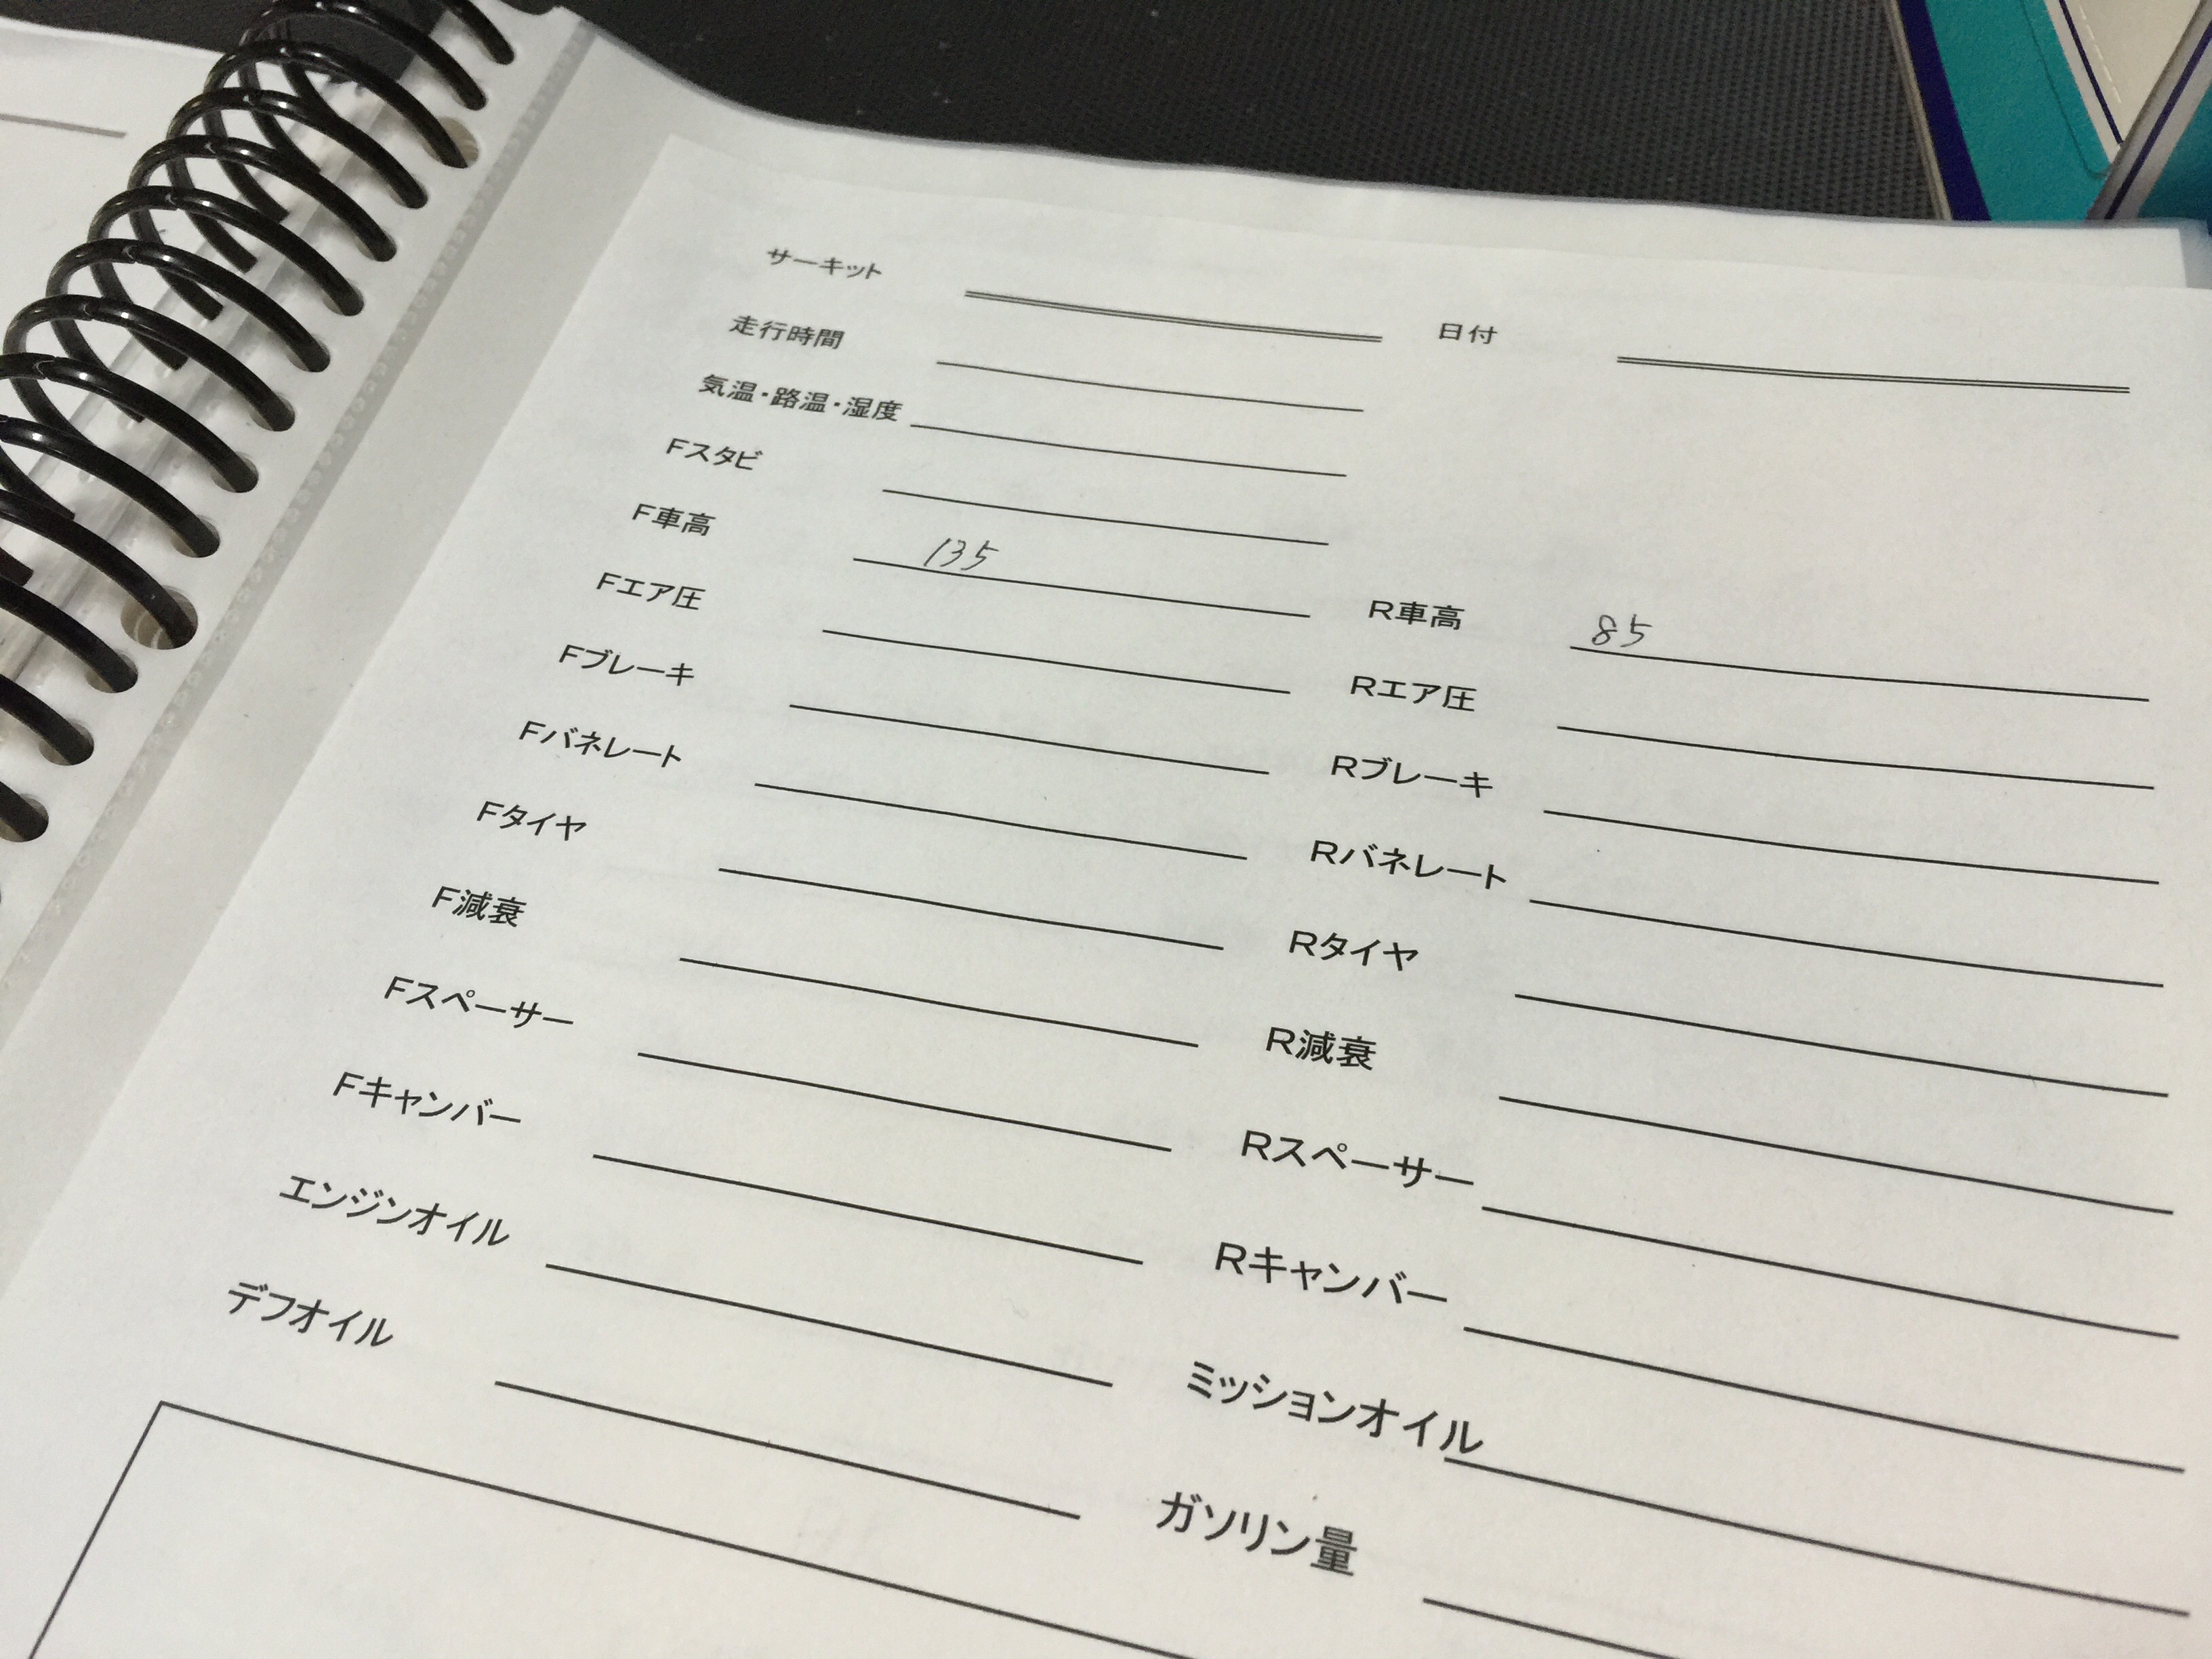 サーキット 日付
走行時間
気温・路温・湿度
Fスタビ
F車高 135 R車高 85
Fエア圧 Rエア圧
Fブレーキ Rブレーキ
Fバネレート Rバネレート
Fタイヤ Rタイヤ
F減衰 R減衰
Fスペーサー Rスペーサー
Fキャンバー Rキャンバー
エンジンオイル ミッションオイル
デフオイル ガソリン量